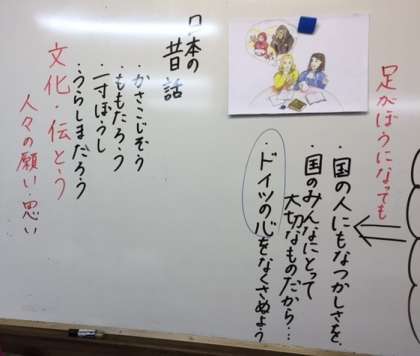 足がぼうになっても
・国の人にもなつかしさを、
・国のみんなにとって
大切なものだから…
・ドイツの心をなくさぬよう
日本の
昔話
・かさこじぞう
・ももたろう
・一寸ぼうし
・うらしまだろう
文化・伝とう
人々の願い・思い